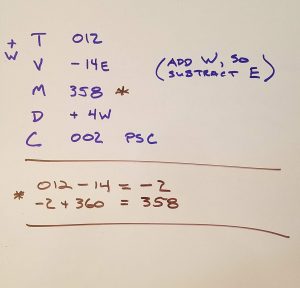 + T 012
W V - 14E (ADD W, SO
SUBTRACT E)
M 358 *
D + 4W
C 002 PSC
012 - 14 = -2
* -2 + 360 = 358